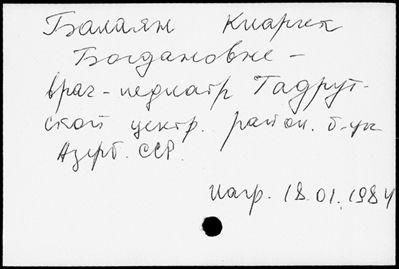 Балаян Кнарик
Богдановне -
врач-педиатр Гадрут-
ской центр. район. б-цы
Азерб. ССР.
Нагр. 18.01.1984